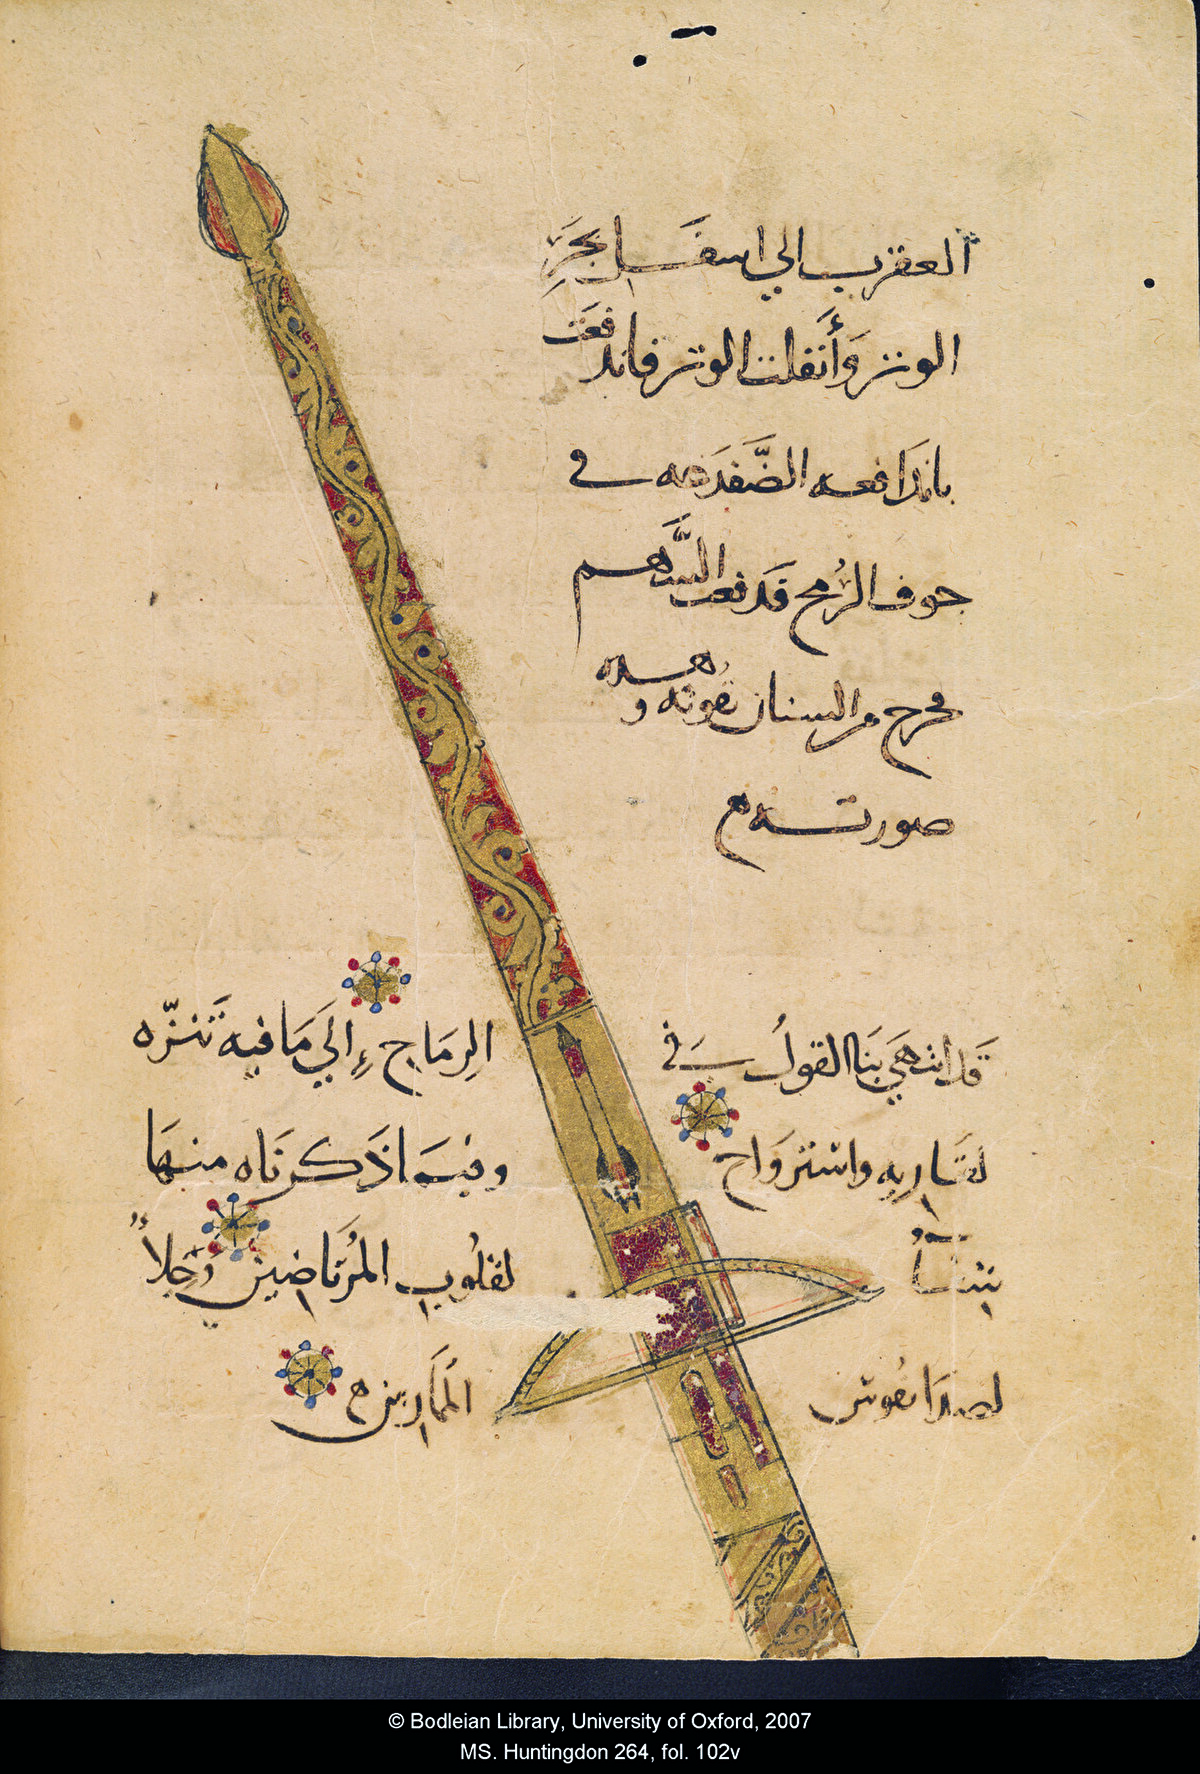 العقرب الي اسفل بجر
الوتر وَأنفلت الوتر فاندفعت
باندافعه الضَّفدَعه في
جوف الرُمح فدفعت السَّهم
فخرج من السنان بقوته وهده
صورته
قَد انتهَي بنَا القولُ في
الرِمَاح إلَي مَا فيه تَنزّه
لقَاريه واستروَاح
وفيمَا ذَكرنَاه منهَا
لقلُوب المُرتَاضين
لصدَا نفوس
الممَارين
© Bodleian Library, University of Oxford, 2007
MS. Huntingdon 264, fol. 102v